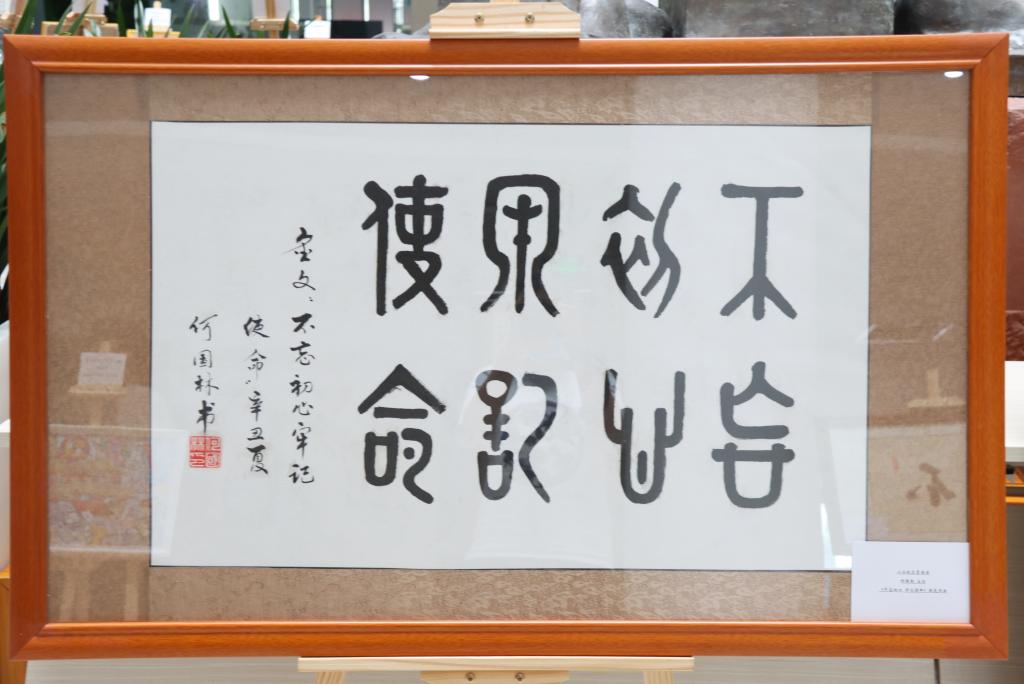 不忘
初心
牢記
使命
金文“不忘初心牢记
使命”辛丑夏
何国林书